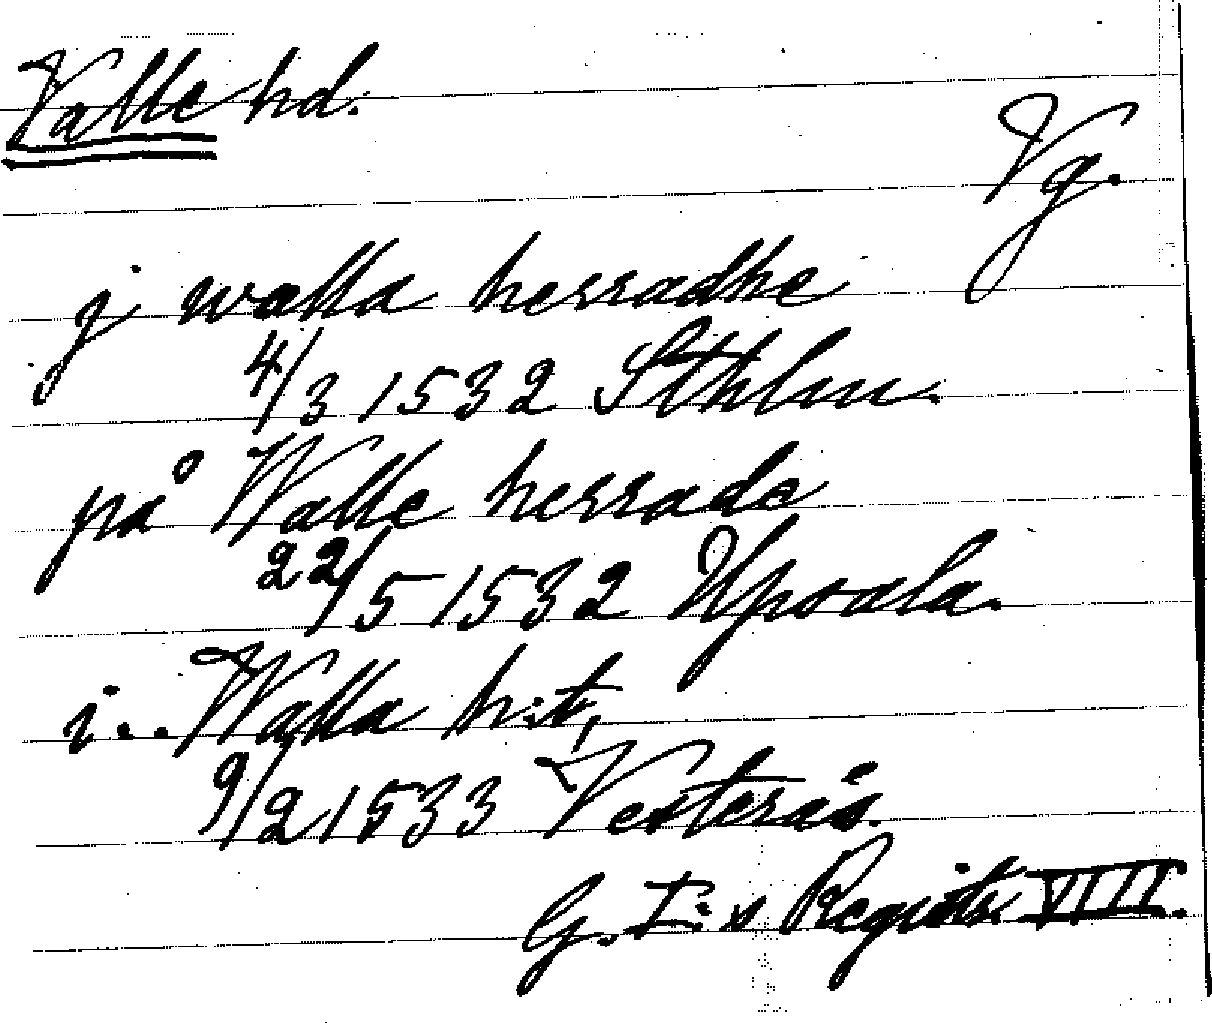 Valle hd.
Vg.
j walla herradhe
4/3 1532 Sthlm.
på Walle herrade
22/5 1532 Upsala.
i.. Walla h:t,
9/2 1533 Vesterås.
G. I:s Registr. VIII.